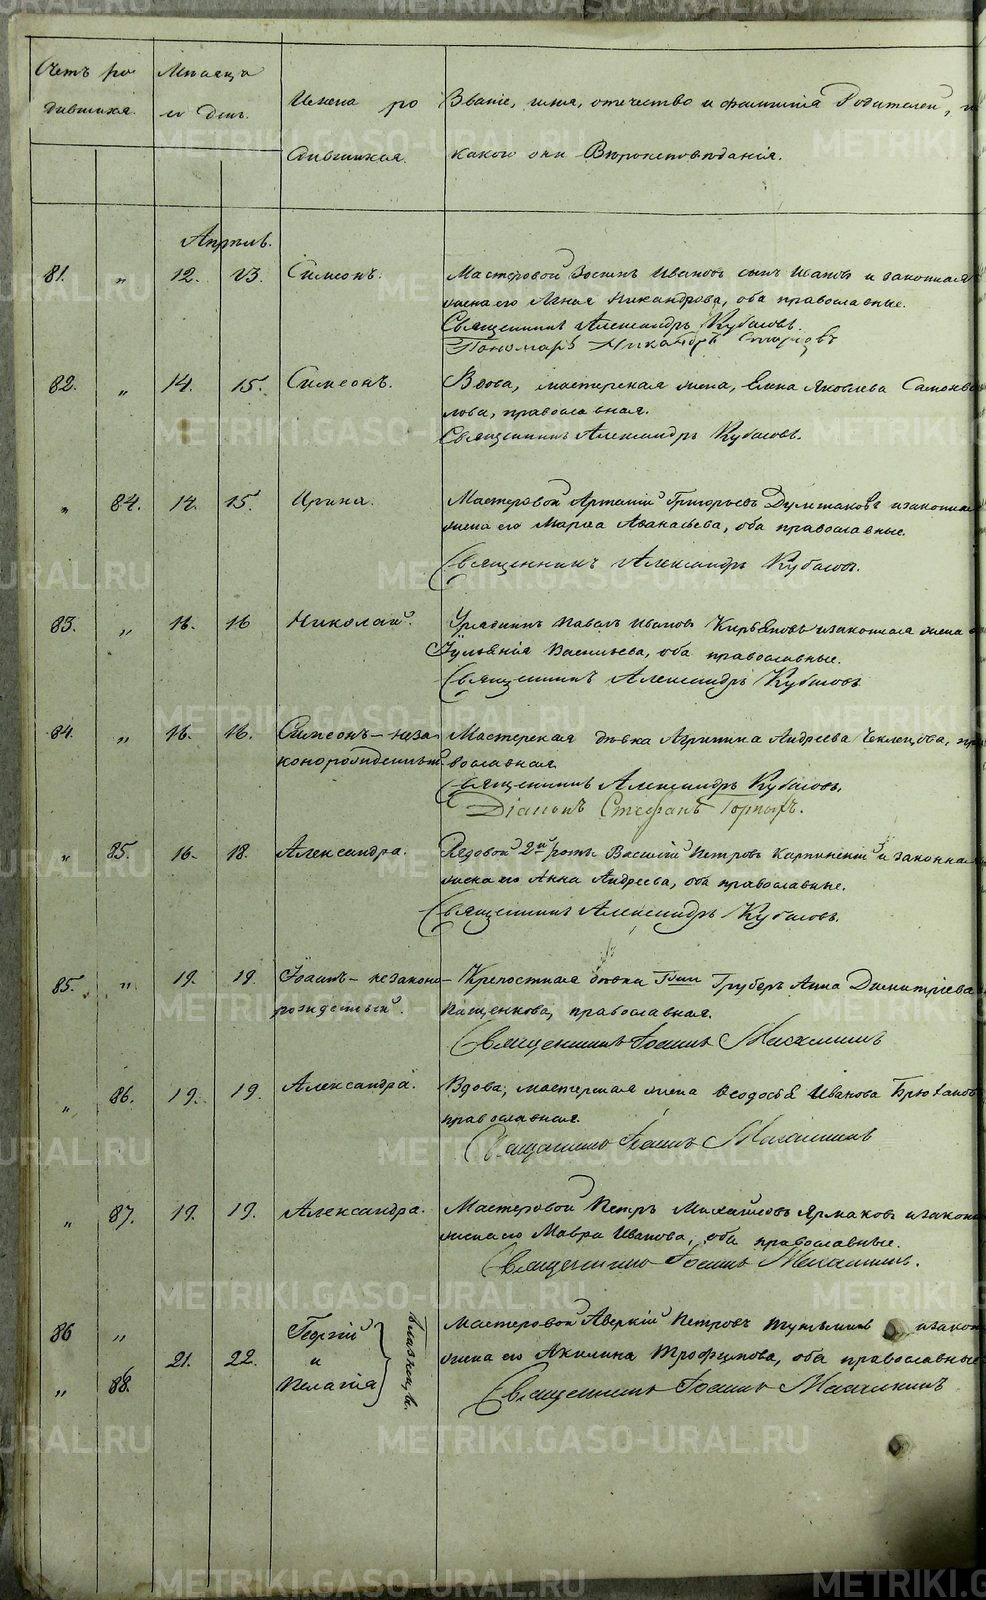 METRIKI.GASO-URAL.RU
Счетъ ро
дившихся.
Мѣсяцъ
и День.
Имена ро
дившихся.
Званіе, имя, отчество и фамилія Родителей, и
какого они Вѣроисповѣданія.
Апрѣль.
81. " 12. 13. Симеонъ. Мастеровой Ивановъ сынъ Ивановъ и законная
жена его Никандрова, оба православные.
Священникъ Александръ Кубасовъ.
Пономарь Никандръ
82. " 14. 15. Симеонъ. Вдова, мастерская жена, Елена Яковлева
лова, православная.
Священникъ Александръ Кубасовъ.
" 84. 14. 15. Ирина. Мастеровой Артемій Григорьевъ и законная
жена его Марѳа Аѳанасьева, оба православные.
Священникъ Александръ Кубасовъ.
83. " 16. 16 Николай. Урядникъ Павелъ Ивановъ Кирьяновъ и законная жена
Іульянія Васильева, оба православные.
Священникъ Александръ Кубасовъ
84. " 16. 16. Симеонъ – неза- Мастерская дѣвка Агрипина Андреева Чеклецова, пра
конорожденный. вославная.
Священникъ Александръ Кубасовъ.
Діаконъ Стефанъ Горныхъ.
" 85. 16. 18. Александра. Рядовой 2й роты Василій Петровъ Карпинскій и законная
жена его Анна Андреева, оба православные.
Священникъ Александръ Кубасовъ.
85. " 19. 19. Іоаннъ – незаконо- Крепостная дѣвка Груберъ Анна Димитріева
рожденный. Кащенкова, православная.
Священникъ Іоаннъ
" 86. 19. 19. Александра. Вдова, мастерская жена Ѳеодосья Иванова
православная.
Священникъ Іоаннъ
" 87. 19. 19. Александра. Мастеровой Петръ Михайловъ Ярмаковъ и закон
жена его Мавра Иванова, оба православные.
Священникъ Іоаннъ
86 " Георгій Мастеровой Аверкій Петровъ и закон
21. 22. и близнецы. жена его Акилина Трофимова, оба православные
" 88. Пелагія Священникъ Іоаннъ